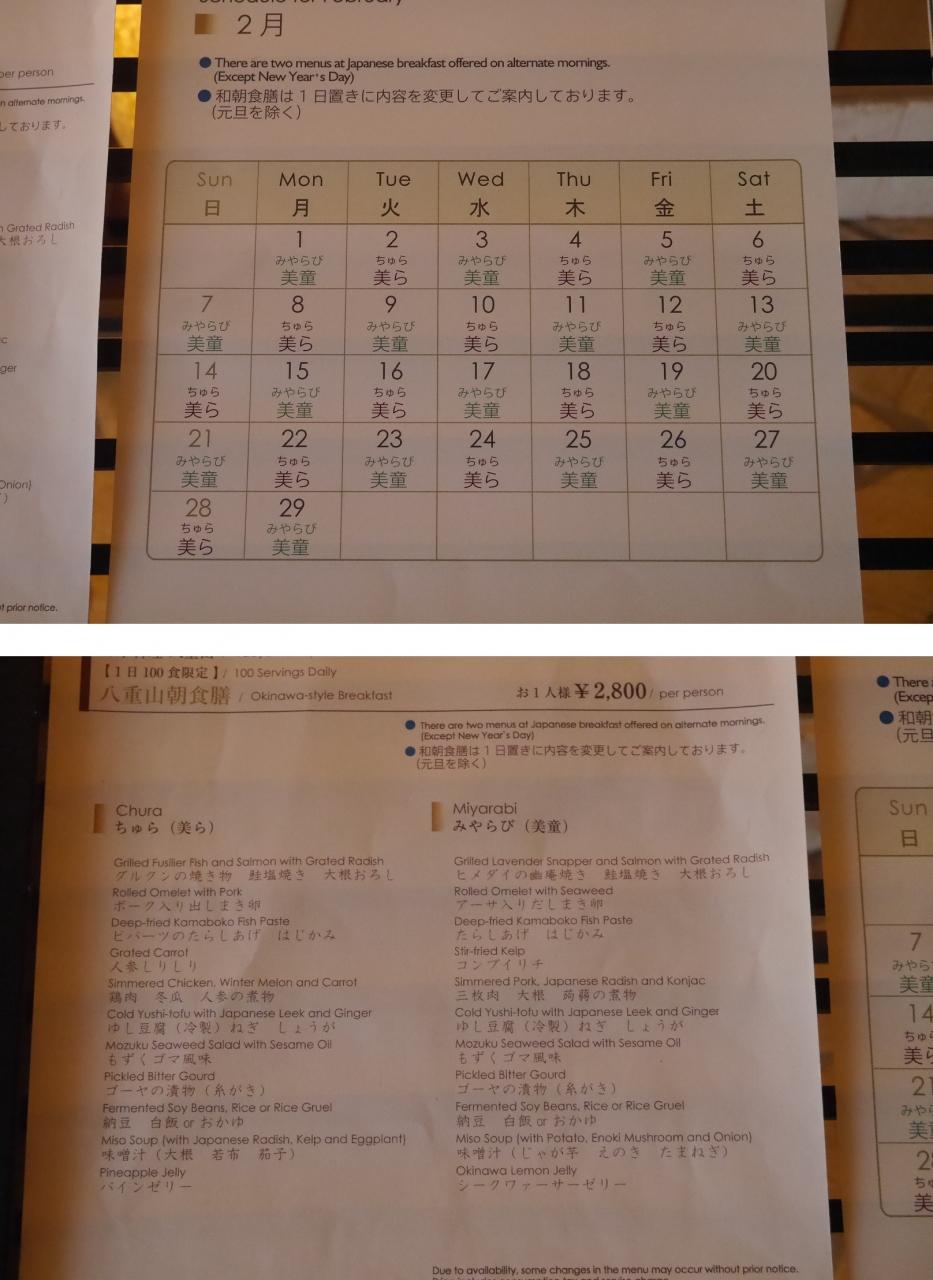 Schedule for February
2月
● There are two menus at Japanese breakfast offered on alternate mornings.
(Except New Year's Day)
● 和朝食膳は1日置きに内容を変更してご案内しております。
(元旦を除く)
Sun Mon Tue Wed Thu Fri Sat
日 月 火 水 木 金 土
1 2 3 4 5 6
みやらび ちゅら みやらび ちゅら みやらび ちゅら
美童 美ら 美童 美ら 美童 美ら
7 8 9 10 11 12 13
みやらび ちゅら みやらび ちゅら みやらび ちゅら みやらび
美童 美ら 美童 美ら 美童 美ら 美童
14 15 16 17 18 19 20
ちゅら みやらび ちゅら みやらび ちゅら みやらび ちゅら
美ら 美童 美ら 美童 美ら 美童 美ら
21 22 23 24 25 26 27
みやらび ちゅら みやらび ちゅら みやらび ちゅら みやらび
美童 美ら 美童 美ら 美童 美ら 美童
28 29
ちゅら みやらび
美ら 美童
per person
n alternate mornings.
しております。
Grated Radish
大根おろし
ger
Onion)
t prior notice.
【1日100食限定】/ 100 Servings Daily
八重山朝食膳 / Okinawa-style Breakfast お1人様 ¥2,800/ per person
● There are two menus at Japanese breakfast offered on alternate mornings.
(Except New Year's Day)
● 和朝食膳は1日置きに内容を変更してご案内しております。
(元旦を除く)
Chura
ちゅら（美ら）
Grilled Fusilier Fish and Salmon with Grated Radish
グルクンの焼き物 鮭塩焼き 大根おろし
Rolled Omelet with Pork
ポーク入り出しまき卵
Deep-fried Kamaboko Fish Paste
ピパーツのたらしあげ はじかみ
Grated Carrot
人参しりしり
Simmered Chicken, Winter Melon and Carrot
鶏肉 冬瓜 人参の煮物
Cold Yushi-tofu with Japanese Leek and Ginger
ゆし豆腐（冷製）ねぎ しょうが
Mozuku Seaweed Salad with Sesame Oil
もずくゴマ風味
Pickled Bitter Gourd
ゴーヤの漬物（糸がき）
Fermented Soy Beans, Rice or Rice Gruel
納豆 白飯 or おかゆ
Miso Soup (with Japanese Radish, Kelp and Eggplant)
味噌汁（大根 若布 茄子）
Pineapple Jelly
パインゼリー
Miyarabi
みやらび（美童）
Grilled Lavender Snapper and Salmon with Grated Radish
ヒメダイの幽庵焼き 鮭塩焼き 大根おろし
Rolled Omelet with Seaweed
アーサ入りだしまき卵
Deep-fried Kamaboko Fish Paste
たらしあげ はじかみ
Stir-fried Kelp
コンブイリチ
Simmered Pork, Japanese Radish and Konjac
三枚肉 大根 蒟蒻の煮物
Cold Yushi-tofu with Japanese Leek and Ginger
ゆし豆腐（冷製）ねぎ しょうが
Mozuku Seaweed Salad with Sesame Oil
もずくゴマ風味
Pickled Bitter Gourd
ゴーヤの漬物（糸がき）
Fermented Soy Beans, Rice or Rice Gruel
納豆 白飯 or おかゆ
Miso Soup (with Potato, Enoki Mushroom and Onion)
味噌汁（じゃが芋 えのき たまねぎ）
Okinawa Lemon Jelly
シークワァーサーゼリー
Due to availability, some changes in the menu may occur without prior notice.
● There a
(Excep
● 和朝
(元旦
Sun
日
7
みやら
美童
14
ちゅ
美ら
21
みや
美